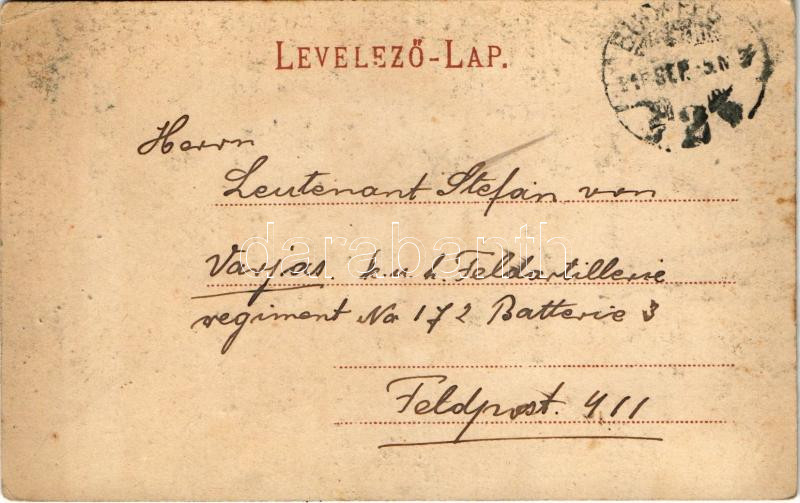 LEVELEZŐ-LAP.
Herrn
Leutenant Stefan von
Varjas. k. u. k. Feldartillerie
regiment No 172 Batterie 3
Feldpost. 411
darabanth